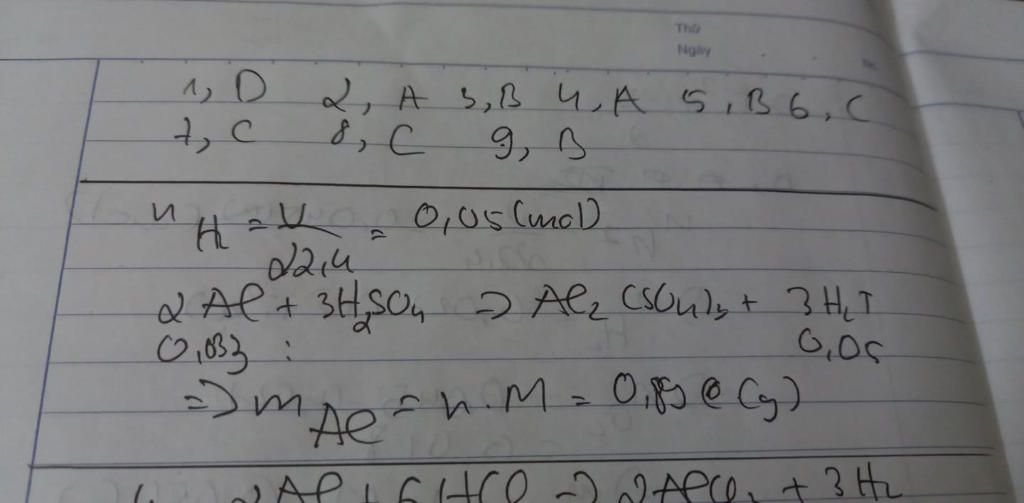 Thứ
Ngày
No.
1, D 2, A 3, B 4, A 5, B 6, C
7, C 8, C 9, B
n H₂ = V/22,4 = 0,05 (mol)
2Al + 3H₂SO₄ => Al₂(SO₄)₃ + 3H₂↑
0,033 : 0,05
=> m Al = n.M = (g)
2Al + 6HCl -> 2AlCl₃ + 3H₂